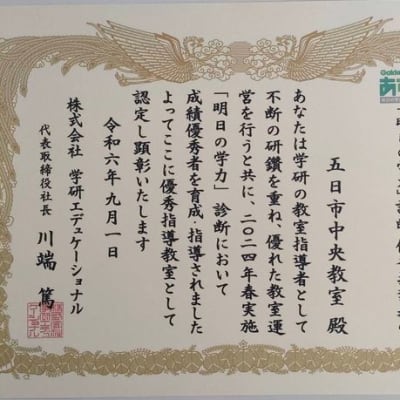 Golde
あ
五日市中央教室 殿
あなたは学研の教室指導者として
不断の研鑽を重ね、優れた教室運
営を行うと共に、二〇二四年春実施
「明日の学力」診断において
成績優秀者を育成・指導されました
よってここに優秀指導教室として
認定し顕彰いたします
令和六年九月一日
株式会社 学研エデュケーショナル
代表取締役社長 川端 篤